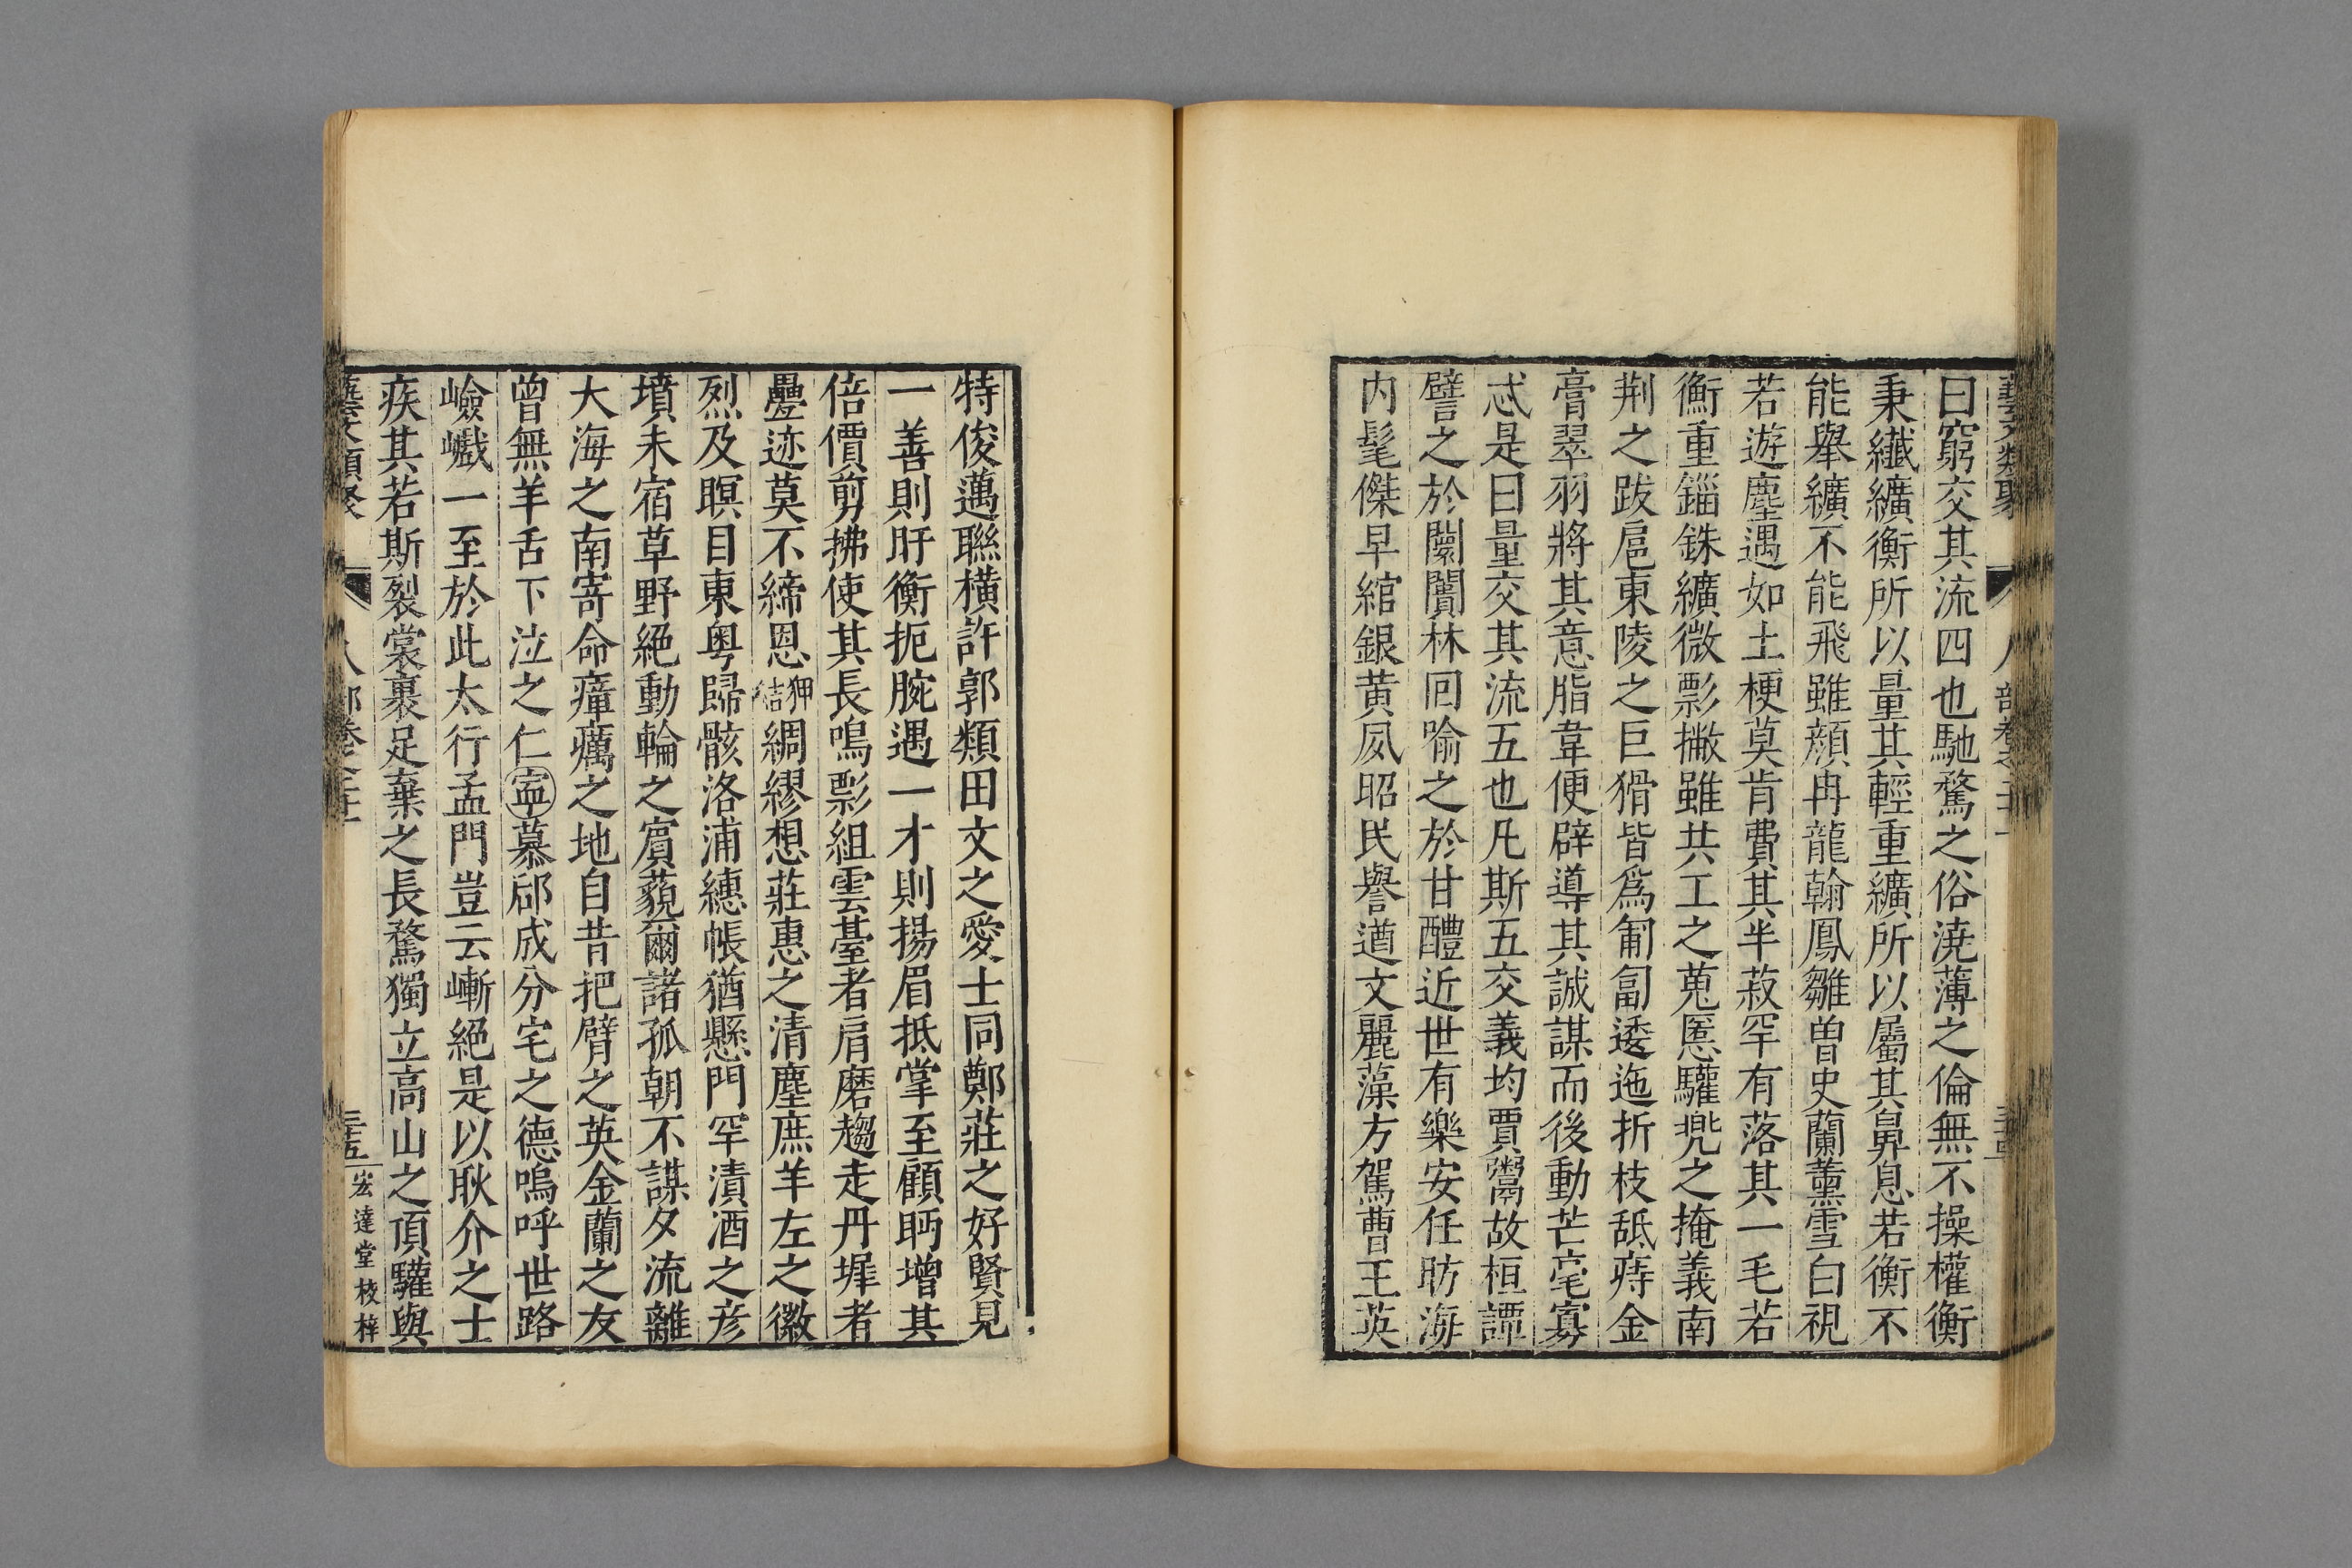 藝文類聚 人部卷之二十一 三十四
曰窮交其流四也馳騖之俗澆薄之倫無不操權衡
秉纎纊衡所以量其輕重纊所以屬其鼻息若衡不
能舉纊不能飛雖顔冉龍翰鳳雛曽史蘭薰雪白視
若遊塵遇如土梗莫肯費其半菽罕有落其一毛若
衡重錙銖纊微影撇雖共工之蒐慝驩兠之掩義南
荆之跋扈東陵之巨猾皆爲匍匐逶迤折枝舐痔金
膏翠羽將其意脂韋便辟導其誠謀而後動芒毫寡
忒是曰量交其流五也凡斯五交義均賈鬻故桓譚
譬之於闤闠林回喻之於甘醴近世有樂安任昉海
内髦傑早綰銀黄夙昭民譽遒文麗藻方駕曹王英
特俊邁聯橫許郭類田文之愛士同鄭莊之好賢見
一善則盱衡扼腕遇一才則揚眉抵掌至顧眄增其
倍價剪拂使其長鳴影組雲臺者肩磨趨走丹墀者
疊迹莫不締恩狎結綢繆想莊惠之清塵庶羊左之徽
烈及瞑目東粤歸骸洛浦繐帳猶懸門罕漬酒之彦
墳未宿草野絕動輪之賓藐爾諸孤朝不謀夕流離
大海之南寄命瘴癘之地自昔把臂之英金蘭之友
曾無羊舌下泣之仁寍慕郈成分宅之德嗚呼世路
嶮巇一至於此太行孟門豈云嶃絕是以耿介之士
疾其若斯裂裳裹足棄之長騖獨立高山之頂驩與
藝文類聚 人部卷之二十一 三十五 宏達堂校梓